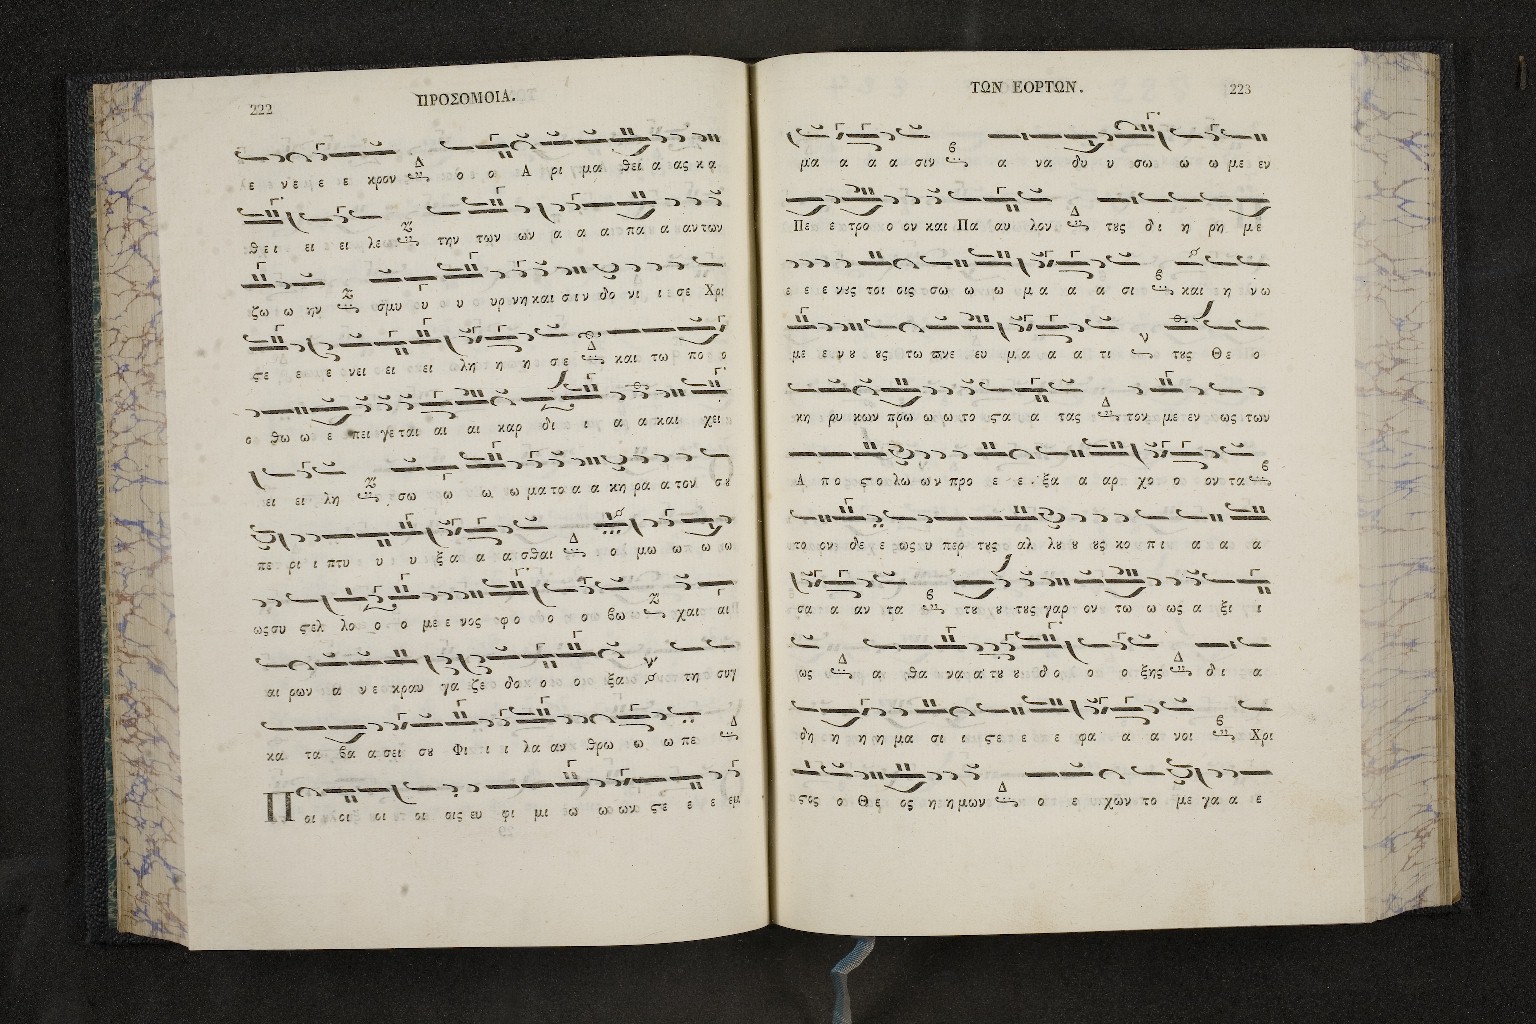 222
ΠΡΟΣΟΜΟΙΑ.
ε νε ε ε κρον Δ ο ο Α ρι μα θεί α ας κα
θει ει ει λεω την των ων α α α πα α αντων
ζω ω ην σμυ υ υ υ υρνηκαι σιν δο νι ι σε Χρι
ϛε ε ε ε νει ει ει λη η η σε Δ και τω πο ο
ο θω ω ε πει γεται αι αι καρ δι ι α α και χει
ει ει λη σω ω ω ω ματο α α κη ρα α τον σȣ
πε ρι ι πτυ υ υ ξα α α ασθαι Δ ο μω ω ω ω
ωςσυ ϛελ λο ο ο με ε νος φο ο ο ο βω χαι αί
αι ρων α νε κραυ γα ζε δο ο ο οι ξα τη συγ
κα τα βα α σει σȣ Φι ι ι ι λα αν θρω ω ω πε Δ
Ποι οι οι οι οις ευ φι μι ω ω ωκ ϛε ε ε εμ
ΤΩΝ ΕΟΡΤΩΝ.
223
μα α α α σιν α να δυ υ σω ω ω με εν
Πε ε τρο ο ον και Πα αυ λον Δ τȣς δι η ρη με
ε ε ε νȣς τοι οις σω ω ω μα α α α σι και η νω
με ε νȣ ȣς τω πνε ευ μα α α α τι τȣς Θε ο
κη ρυ κων πρω ω ω το ϛα α τας Δ τον με εν ως των
Α πο ϛο λω ων προ ε ε ξα α αρ χο ο ον τα
το ον δε ε ως υ περ τȣς αλ λȣ ȣ ȣς κο πι α α α
σα α αν τα τȣ ȣ τȣς γαρ ον τω ω ως α ξι ι
ως Δ α θα να α τȣ ȣ δο ο ο ο ξης Δ δι α
δη η η η μα σι ι ϛε ε ε ε φα α α νοι Χρι
ϛος ο Θε ος η η μων Δ ο ε χων το με γα α ε